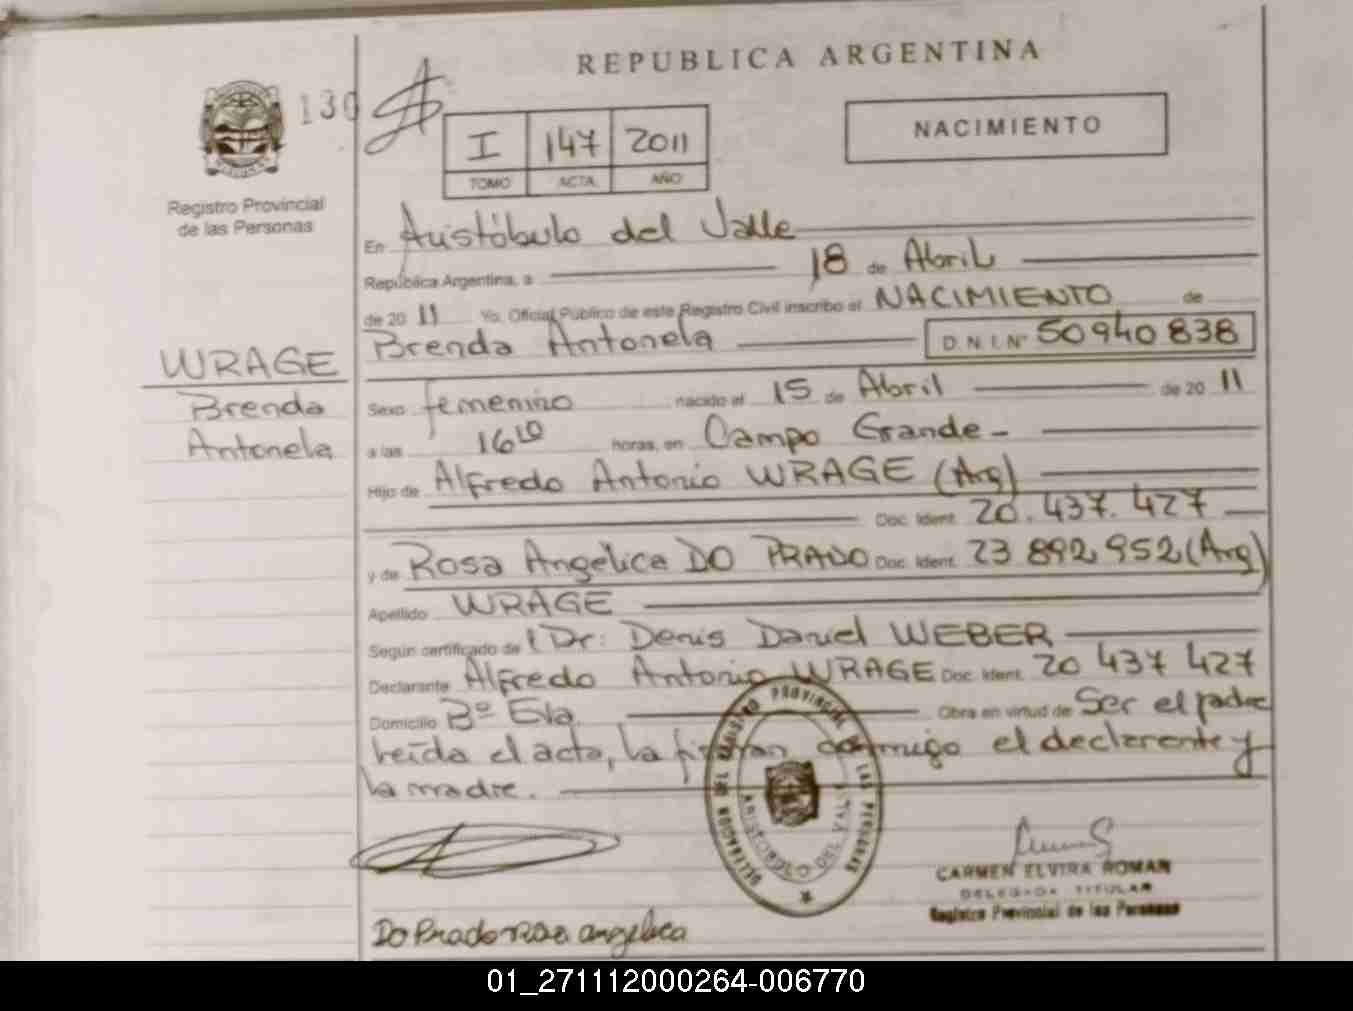 REPUBLICA ARGENTINA
130
I 147 2011
TOMO ACTA AÑO
NACIMIENTO
Registro Provincial
de las Personas
En Aristóbulo del Valle
República Argentina, a 18 de Abril
de 20 11 Yo, Oficial Público de este Registro Civil inscribo el NACIMIENTO de
Brenda Antonela D. N. I. Nº 50940838
WRAGE
Brenda
Antonela
Sexo femenino nacido el 15 de Abril de 20 11
a las 16 10 horas, en Campo Grande -
Hijo de Alfredo Antonio WRAGE (Arg)
Doc. Ident. 20.437.427
y de Rosa Angélica DO PRADO Doc. Ident. 23 892 952 (Arg)
Apellido WRAGE
Según certificado de Dr: Denis Daniel WEBER
Declarante Alfredo Antonio WRAGE Doc. Ident. 20 437 427
Domicilio Bº Eva Obra en virtud de Ser el padre
Leída el acta, la firman conmigo el declarante y
la madre.
DELEGACION DEL REGISTRO PROVINCIAL DE LAS PERSONAS
ARISTOBULO DEL VALLE
CARMEN ELVIRA ROMAN
DELEGADA TITULAR
Registro Provincial de las Personas
Do Prado Rosa angelica
01_271112000264-006770